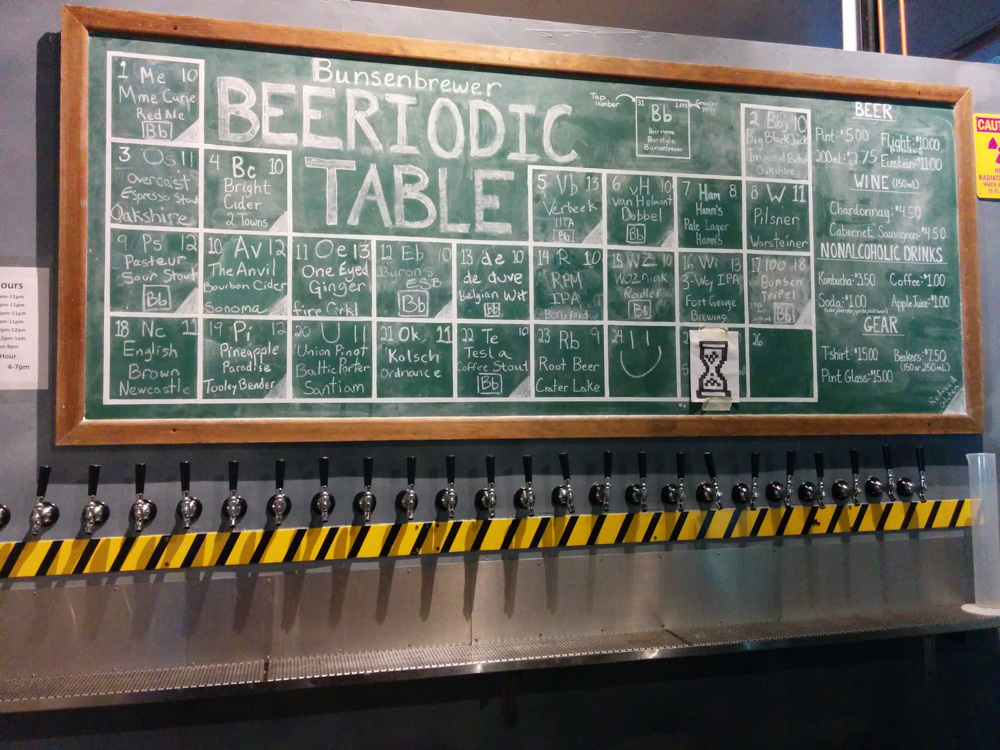 Bunsenbrewer
BEERIODIC
TABLE
Tap
number
31
Bb
Beer name
Beer style
Bunsenbrewer
1 Me 10
Mme Curie
Red Ale
Bb
2 Bb 10
Oakshire
3 Os 11
Overcast
Espresso Stout
Oakshire
4 Bc 10
Bright
Cider
2 Towns
5 Vb 13
Verbeek
IIPA
Bb
6 vH 10
Van Helmont
Dubbel
Bb
7 Ham 8
Hamm's
Pale Lager
Hamm's
8 W 11
Pilsner
Warsteiner
9 Ps 12
Pasteur
Sour Stout
Bb
10 Av 12
The Anvil
Bourbon Cider
Sonoma
11 Oe 13
One Eyed
Ginger
Fire Cirkl
12 Eb 10
Byron's
ESB
Bb
13 de 10
de duve
Belgian Wit
Bb
14 R 10
RPM
IPA
15 WZ 10
WOZniak
Radler
Bb
16 Wi 13
3-Way IPA
Fort George
Brewing
17 100 18
Bunsen
Bb
18 Nc 11
English
Brown
Newcastle
19 Pi 12
Pineapple
Paradise
TooleyBender
20 U 11
Union Pinot
Baltic Porter
Santiam
21 Ok 11
Kolsch
Ordnance
22 Te 10
Tesla
Coffee Stout
Bb
23 Rb 9
Root Beer
Crater Lake
24
26
BEER
Pint: $5.00 Flight: $10.00
200mL: $2.75 Einstein: $11.00
WINE (150mL)
Chardonnay: $4.50
Cabernet Sauvignon: $4.50
NONALCOHOLIC DRINKS
Kombucha: $3.50 Coffee: $1.00
Soda: $1.00 Apple Juice: $1.00
GEAR
T-shirt: $15.00 Beakers: $7.50
(150 or 250 mL)
Pint Glass: $15.00
CAUT
Hour
4-7pm